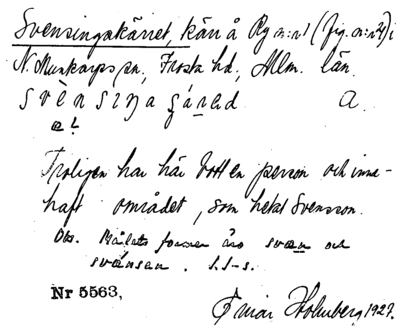 Svensingakärret, kärr å Äg n:r 1 (fig. n:r 24) i
N. Munkarps sn, Frosta hd, Mlm. län.
svènsiŋa ʂáræd a.
æ!
Troligen har här bott en person och inne-
haft området, som hetat Svensson.
Obs. Målets former äro svæn och
svænsen. S.S-s.
Nr 5563,
Einar Holmberg 1927.